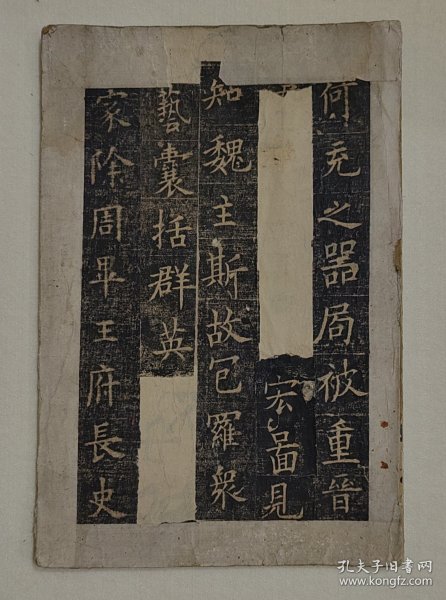 何充之器局被重晉
宏啚見
知魏主斯故包羅衆
藝囊括群英
家除周畢王府長史
孔夫子旧书网
www.kongfz.com